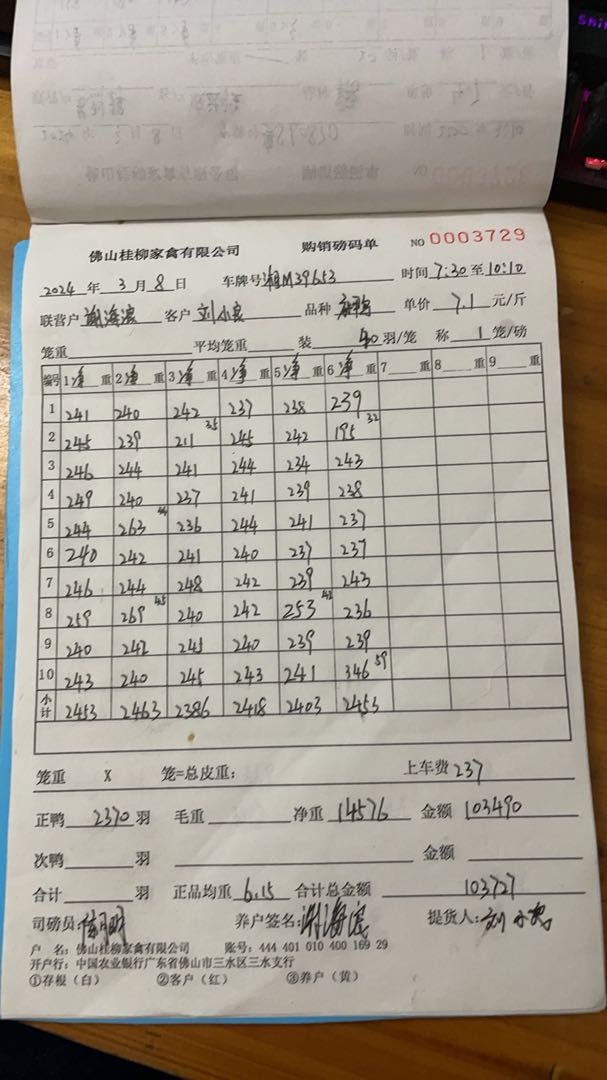 佛山桂柳家禽有限公司 购销磅码单 NO 0003729
2024 年 3 月 8 日 车牌号 湘M39653 时间 7:30 至 10:10
联营户 谢海滨 客户 刘小良 品种 单价 7.1 元/斤
笼重 平均笼重 装 40 羽/笼 称 1 笼/磅
编号 1 净 重 2 净 重 3 净 重 4 净 重 5 净 重 6 净 重 7 重 8 重 9 重
1 241 240 242 237 238 239
2 245 239 211 35 245 242 195 32
3 246 244 241 244 234 243
4 249 240 237 241 239 238
5 244 263 44 236 244 241 237
6 240 242 241 240 237 237
7 246 244 248 242 239 243
8 259 269 45 240 242 253 42 236
9 240 242 245 240 239 239
10 243 240 245 243 241 346 59
小计 2453 2463 2386 2418 2403 2453
笼重 X 笼=总皮重: 上车费 237
正鸭 2370 羽 毛重 净重 14576 金额 103490
次鸭 羽 金额
合计 羽 正品均重 6.15 合计总金额 103727
司磅员: 养户签名: 谢海滨 提货人: 刘小良
户 名: 佛山桂柳家禽有限公司 账号: 444 401 010 400 169 29
开户行: 中国农业银行广东省佛山市三水区三水支行
①存根(白) ②客户(红) ③养户(黄)